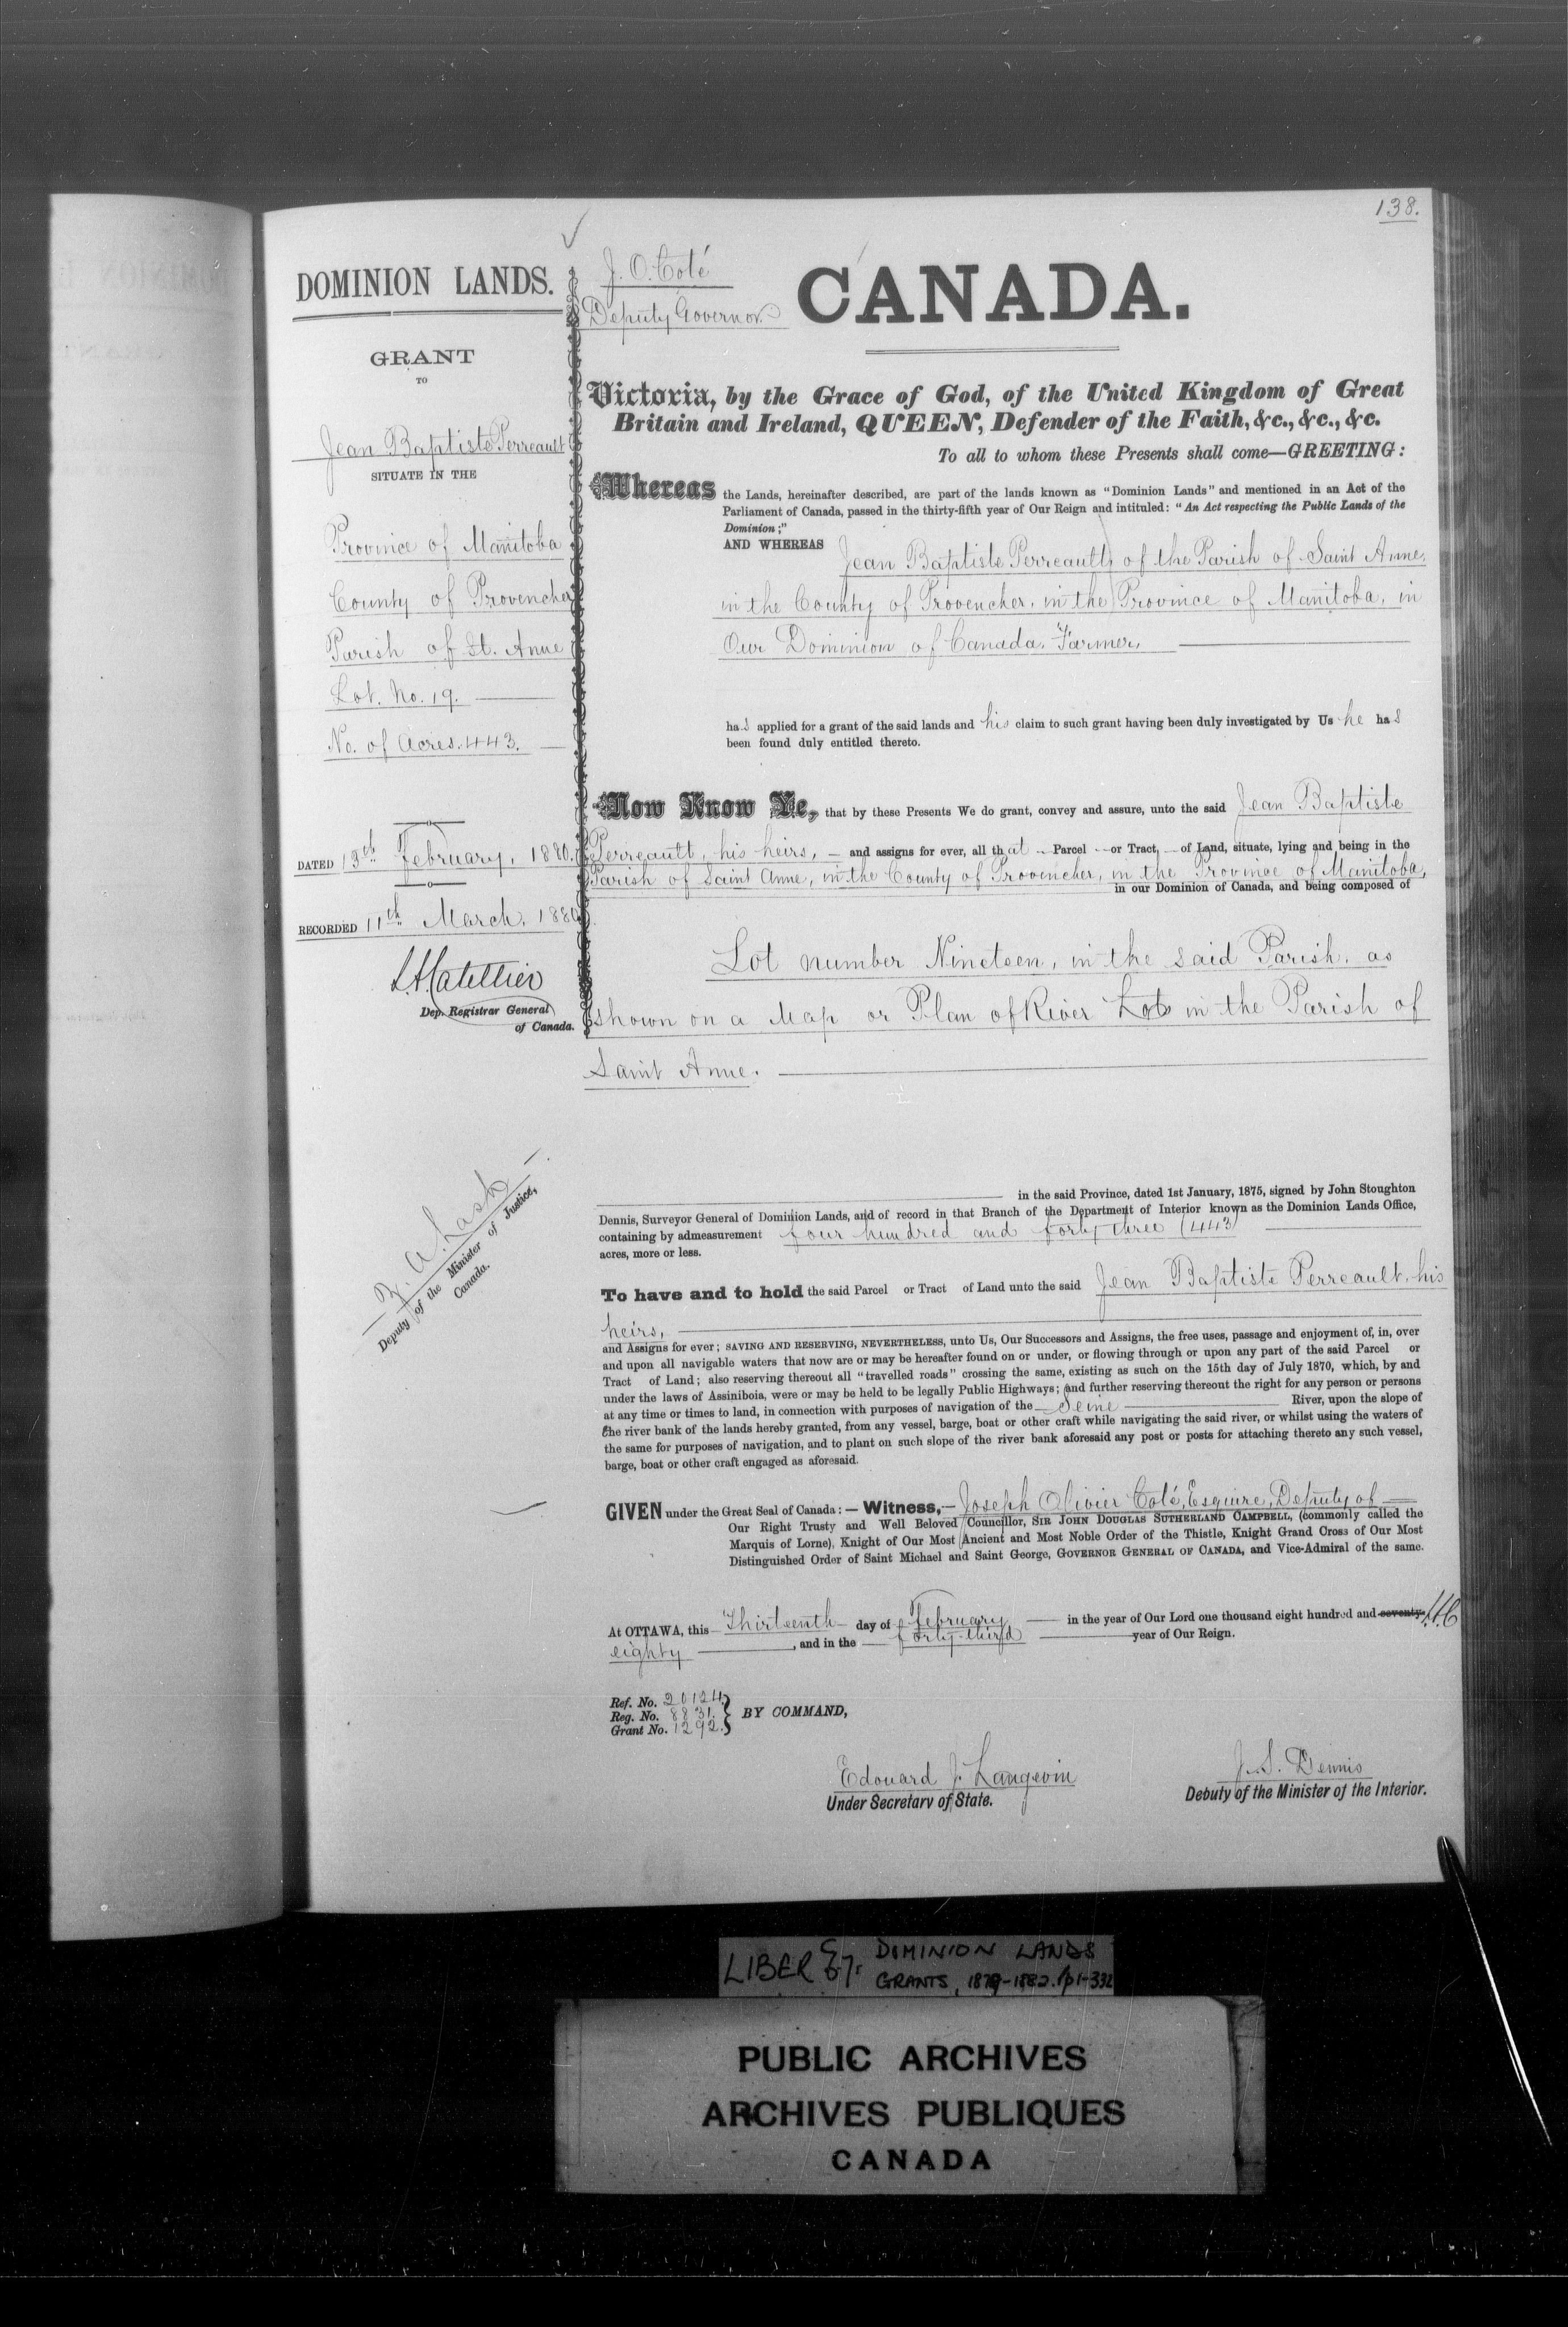 138.
DOMINION LANDS.
GRANT
TO
Jean Baptiste Perreault
SITUATE IN THE
Province of Manitoba
County of Provencher
Parish of St. Anne
Lot. No. 19.
No. of Acres. 443.
DATED 13th February, 1880.
RECORDED 11th March, 1880
L.H. Catellier
Dep. Registrar General
of Canada.
Z. A. Lash
Deputy of the Minister of Justice,
Canada.
J. O. Coté
Deputy Governor
CANADA.
Victoria, by the Grace of God, of the United Kingdom of Great
Britain and Ireland, QUEEN, Defender of the Faith, &c., &c., &c.
To all to whom these Presents shall come—GREETING:
Whereas the Lands, hereinafter described, are part of the lands known as "Dominion Lands" and mentioned in an Act of the
Parliament of Canada, passed in the thirty-fifth year of Our Reign and intituled: "An Act respecting the Public Lands of the
Dominion;"
AND WHEREAS Jean Baptiste Perreault, of the Parish of Saint Anne,
in the County of Provencher, in the Province of Manitoba, in
Our Dominion of Canada, Farmer,
has applied for a grant of the said lands and his claim to such grant having been duly investigated by Us he has
been found duly entitled thereto.
Now Know Ye, that by these Presents We do grant, convey and assure, unto the said Jean Baptiste
Perreault, his heirs, — and assigns for ever, all that Parcel or Tract, of Land, situate, lying and being in the
Parish of Saint Anne, in the County of Provencher, in the Province of Manitoba,
in our Dominion of Canada, and being composed of
Lot number Nineteen, in the said Parish, as
shown on a Map or Plan of River Lots in the Parish of
Saint Anne.
in the said Province, dated 1st January, 1875, signed by John Stoughton
Dennis, Surveyor General of Dominion Lands, and of record in that Branch of the Department of Interior known as the Dominion Lands Office,
containing by admeasurement four hundred and forty three (443)
acres, more or less.
To have and to hold the said Parcel or Tract of Land unto the said Jean Baptiste Perreault, his
heirs,
and Assigns for ever; SAVING AND RESERVING, NEVERTHELESS, unto Us, Our Successors and Assigns, the free uses, passage and enjoyment of, in, over
and upon all navigable waters that now are or may be hereafter found on or under, or flowing through or upon any part of the said Parcel or
Tract of Land; also reserving thereout all "travelled roads" crossing the same, existing as such on the 15th day of July 1870, which, by and
under the laws of Assiniboia, were or may be held to be legally Public Highways; and further reserving thereout the right for any person or persons
at any time or times to land, in connection with purposes of navigation of the Seine River, upon the slope of
the river bank of the lands hereby granted, from any vessel, barge, boat or other craft while navigating the said river, or whilst using the waters of
the same for purposes of navigation, and to plant on such slope of the river bank aforesaid any post or posts for attaching thereto any such vessel,
barge, boat or other craft engaged as aforesaid.
GIVEN under the Great Seal of Canada: — Witness,— Joseph Olivier Coté, Esquire, Deputy of
Our Right Trusty and Well Beloved Councillor, SIR JOHN DOUGLAS SUTHERLAND CAMPBELL, (commonly called the
Marquis of Lorne), Knight of Our Most Ancient and Most Noble Order of the Thistle, Knight Grand Cross of Our Most
Distinguished Order of Saint Michael and Saint George, GOVERNOR GENERAL OF CANADA, and Vice-Admiral of the same.
At OTTAWA, this Thirteenth day of February in the year of Our Lord one thousand eight hundred and seventy L.H.C
eighty, and in the forty-third year of Our Reign.
Ref. No. 20124
Reg. No. 8831.
Grant No. 1292.
BY COMMAND,
Edouard J. Langevin
Under Secretary of State.
J. S. Dennis
Deputy of the Minister of the Interior.
LIBER 67: DOMINION LANDS
GRANTS, 1879-1882. pp1-332
PUBLIC ARCHIVES
ARCHIVES PUBLIQUES
CANADA